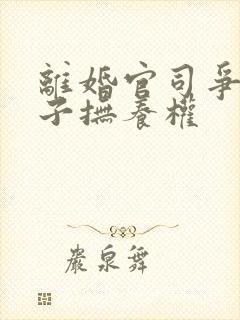 離婚官司爭
子撫養權
嚴泉舞